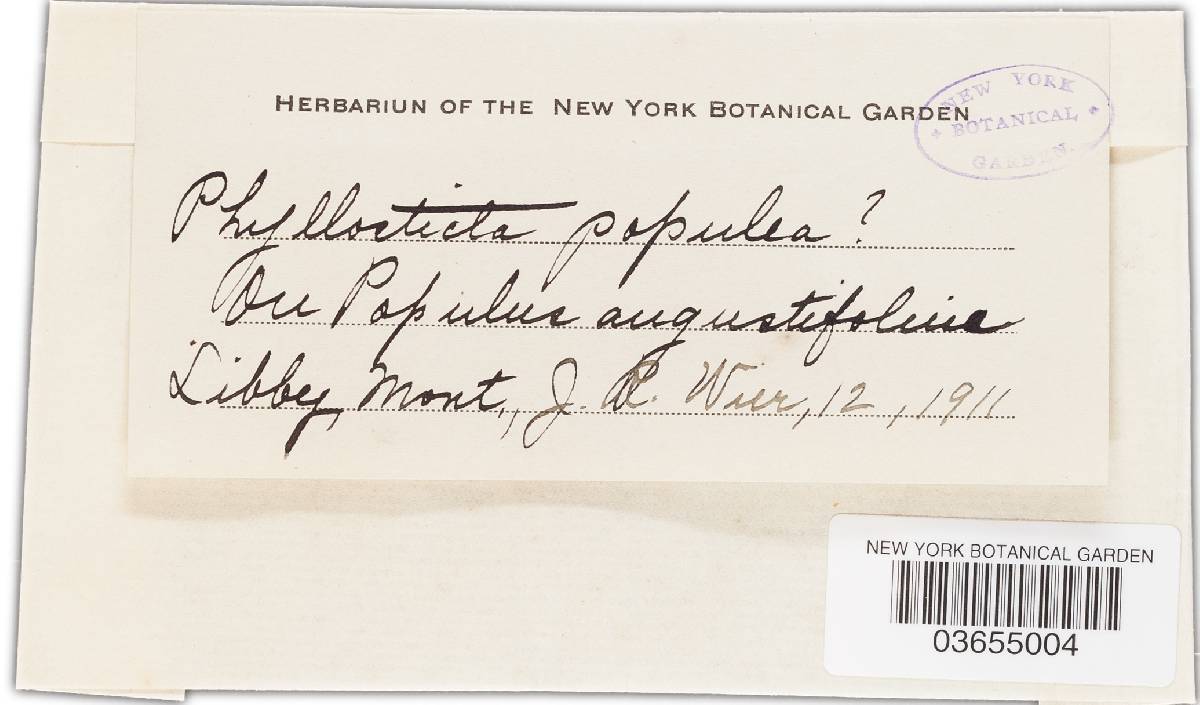 HERBARIUN OF THE NEW YORK BOTANICAL GARDEN
NEW YORK
BOTANICAL
GARDEN.
Phyllosticta populea?
On Populus angustifoliae
Libby, Mont., J. R. Wier, 12, 1911
NEW YORK BOTANICAL GARDEN
03655004